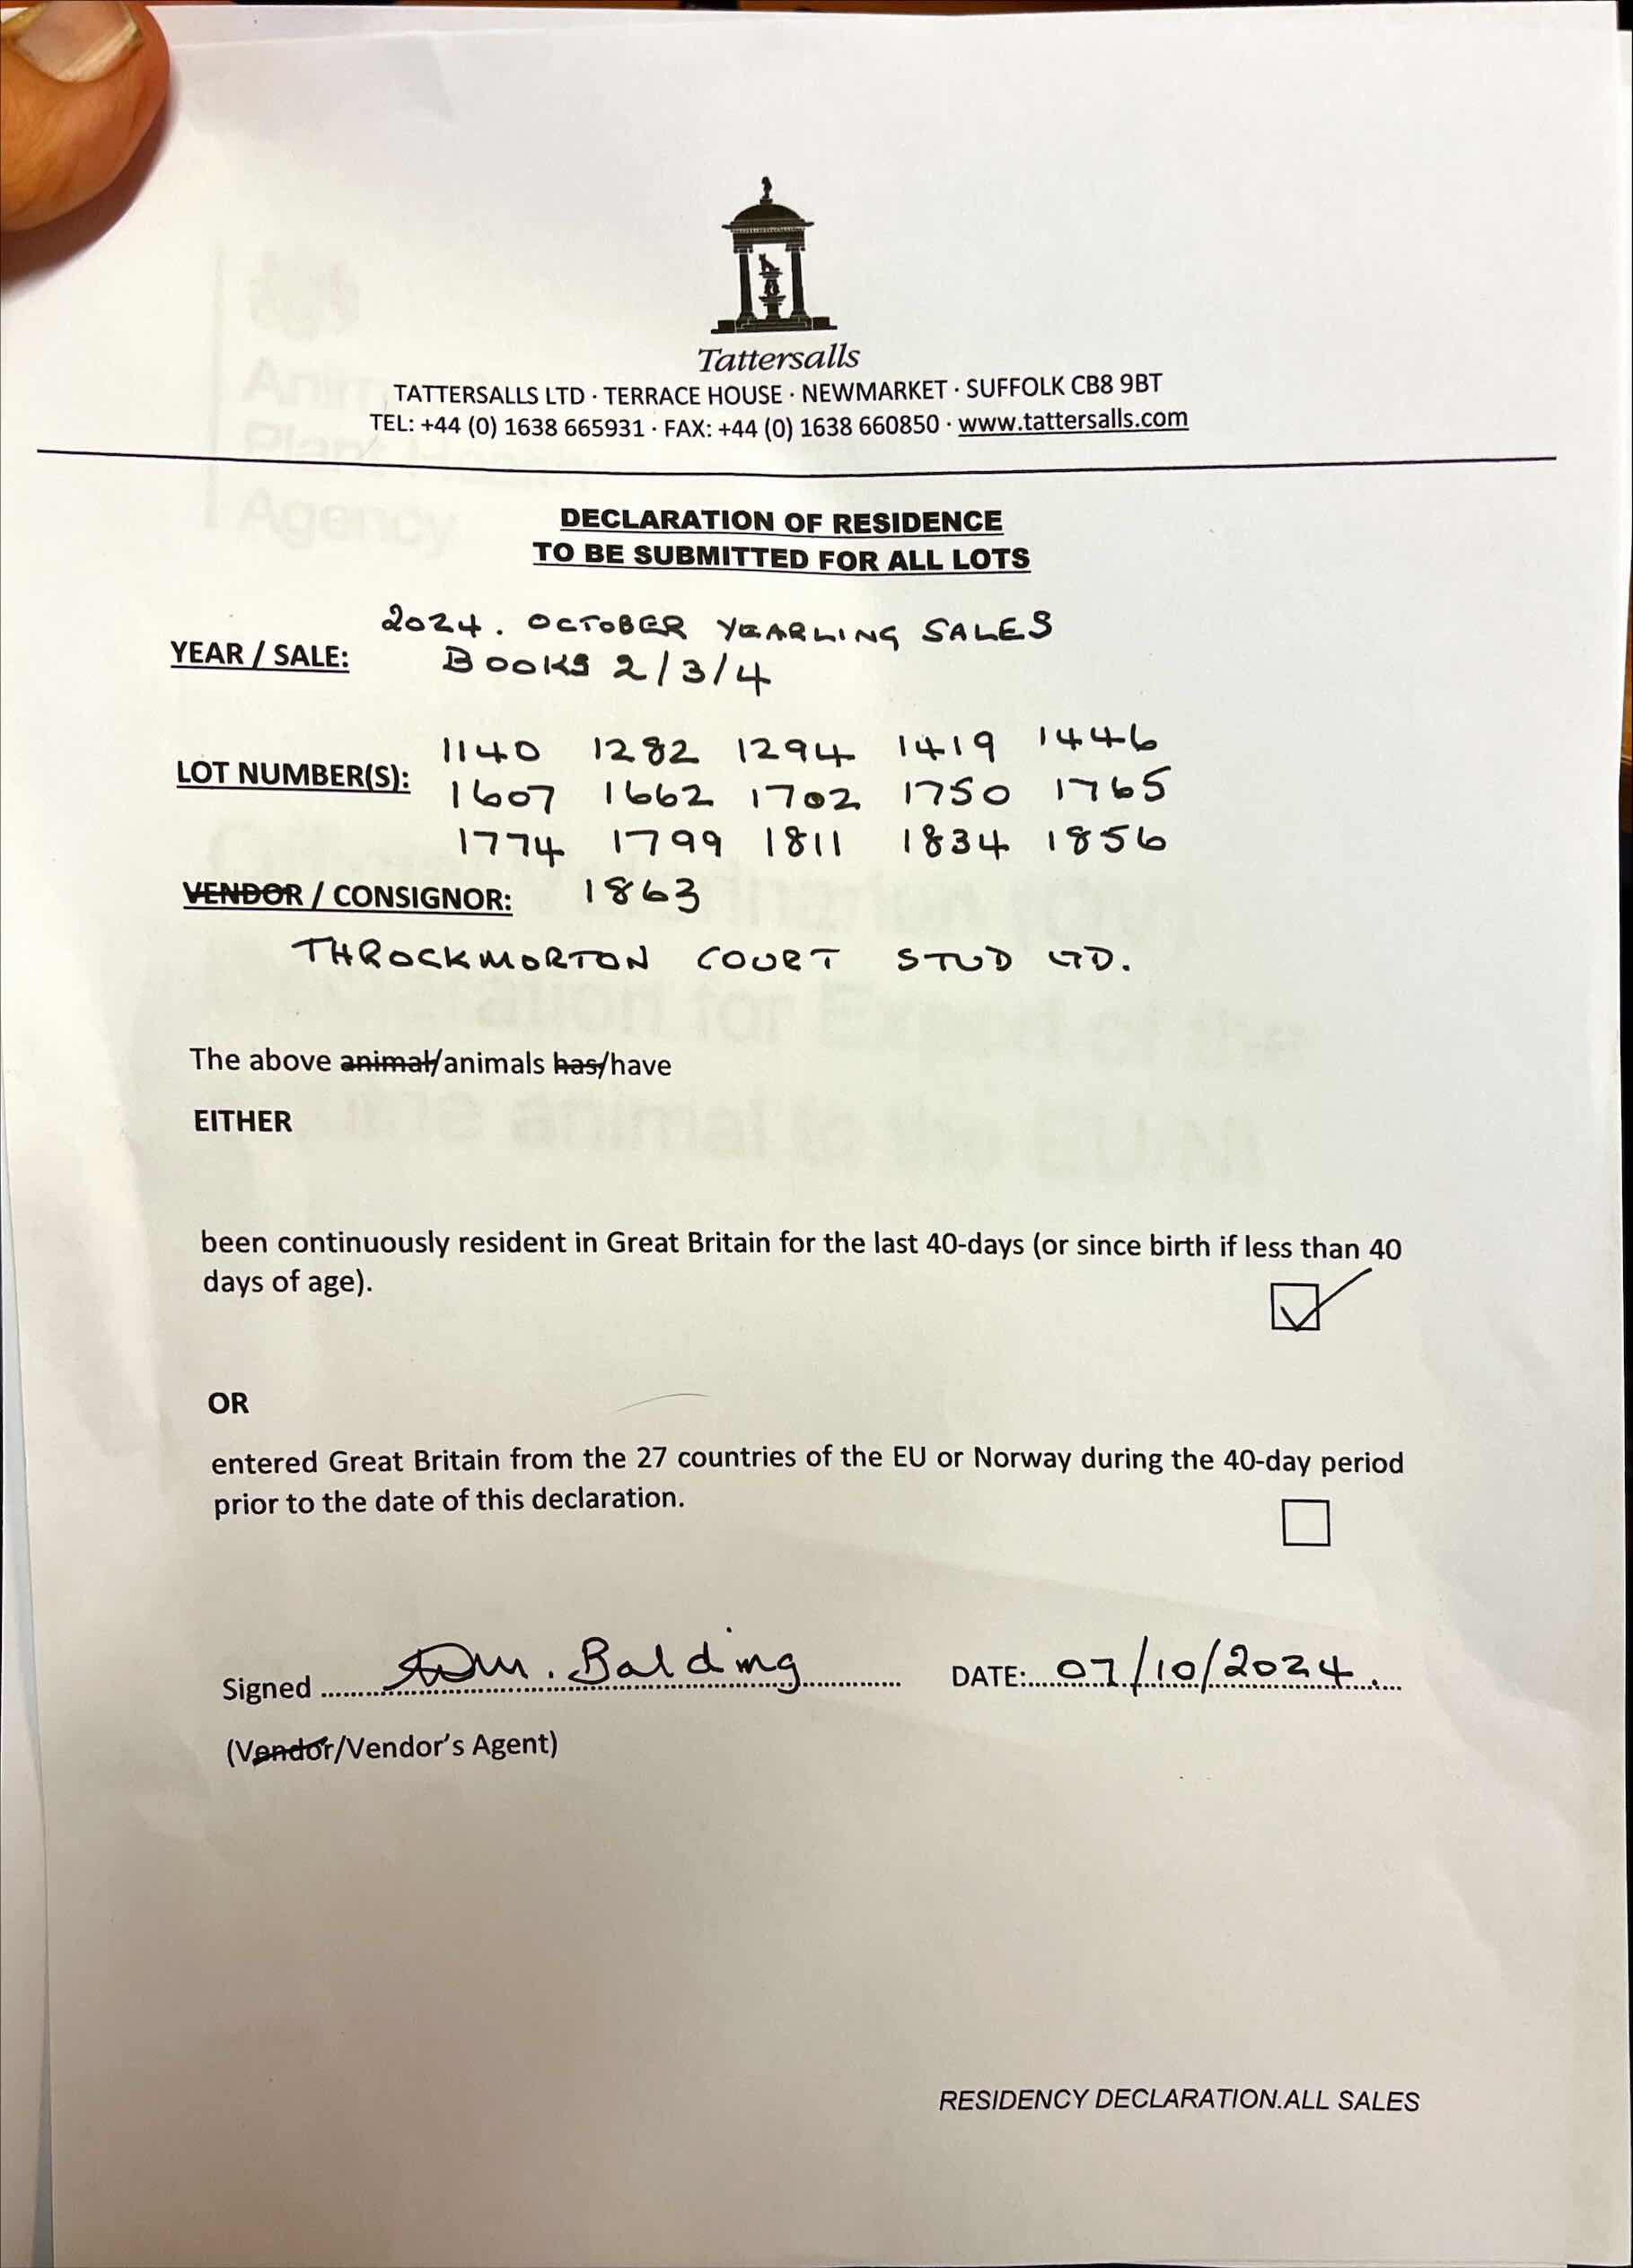 Tattersalls
TATTERSALLS LTD · TERRACE HOUSE · NEWMARKET · SUFFOLK CB8 9BT
TEL: +44 (0) 1638 665931 · FAX: +44 (0) 1638 660850 · www.tattersalls.com
DECLARATION OF RESIDENCE
TO BE SUBMITTED FOR ALL LOTS
2024. OCTOBER YEARLING SALES
YEAR / SALE: BOOKS 2/3/4
1140 1282 1294 1419 1446
LOT NUMBER(S): 1607 1662 1702 1750 1765
1774 1799 1811 1834 1856
VENDOR / CONSIGNOR: 1863
THROCKMORTON COURT STUD LTD.
The above animal/animals has/have
EITHER
been continuously resident in Great Britain for the last 40-days (or since birth if less than 40
days of age).
OR
entered Great Britain from the 27 countries of the EU or Norway during the 40-day period
prior to the date of this declaration.
Signed Balding DATE: 07/10/2024.
(Vendor/Vendor's Agent)
RESIDENCY DECLARATION.ALL SALES